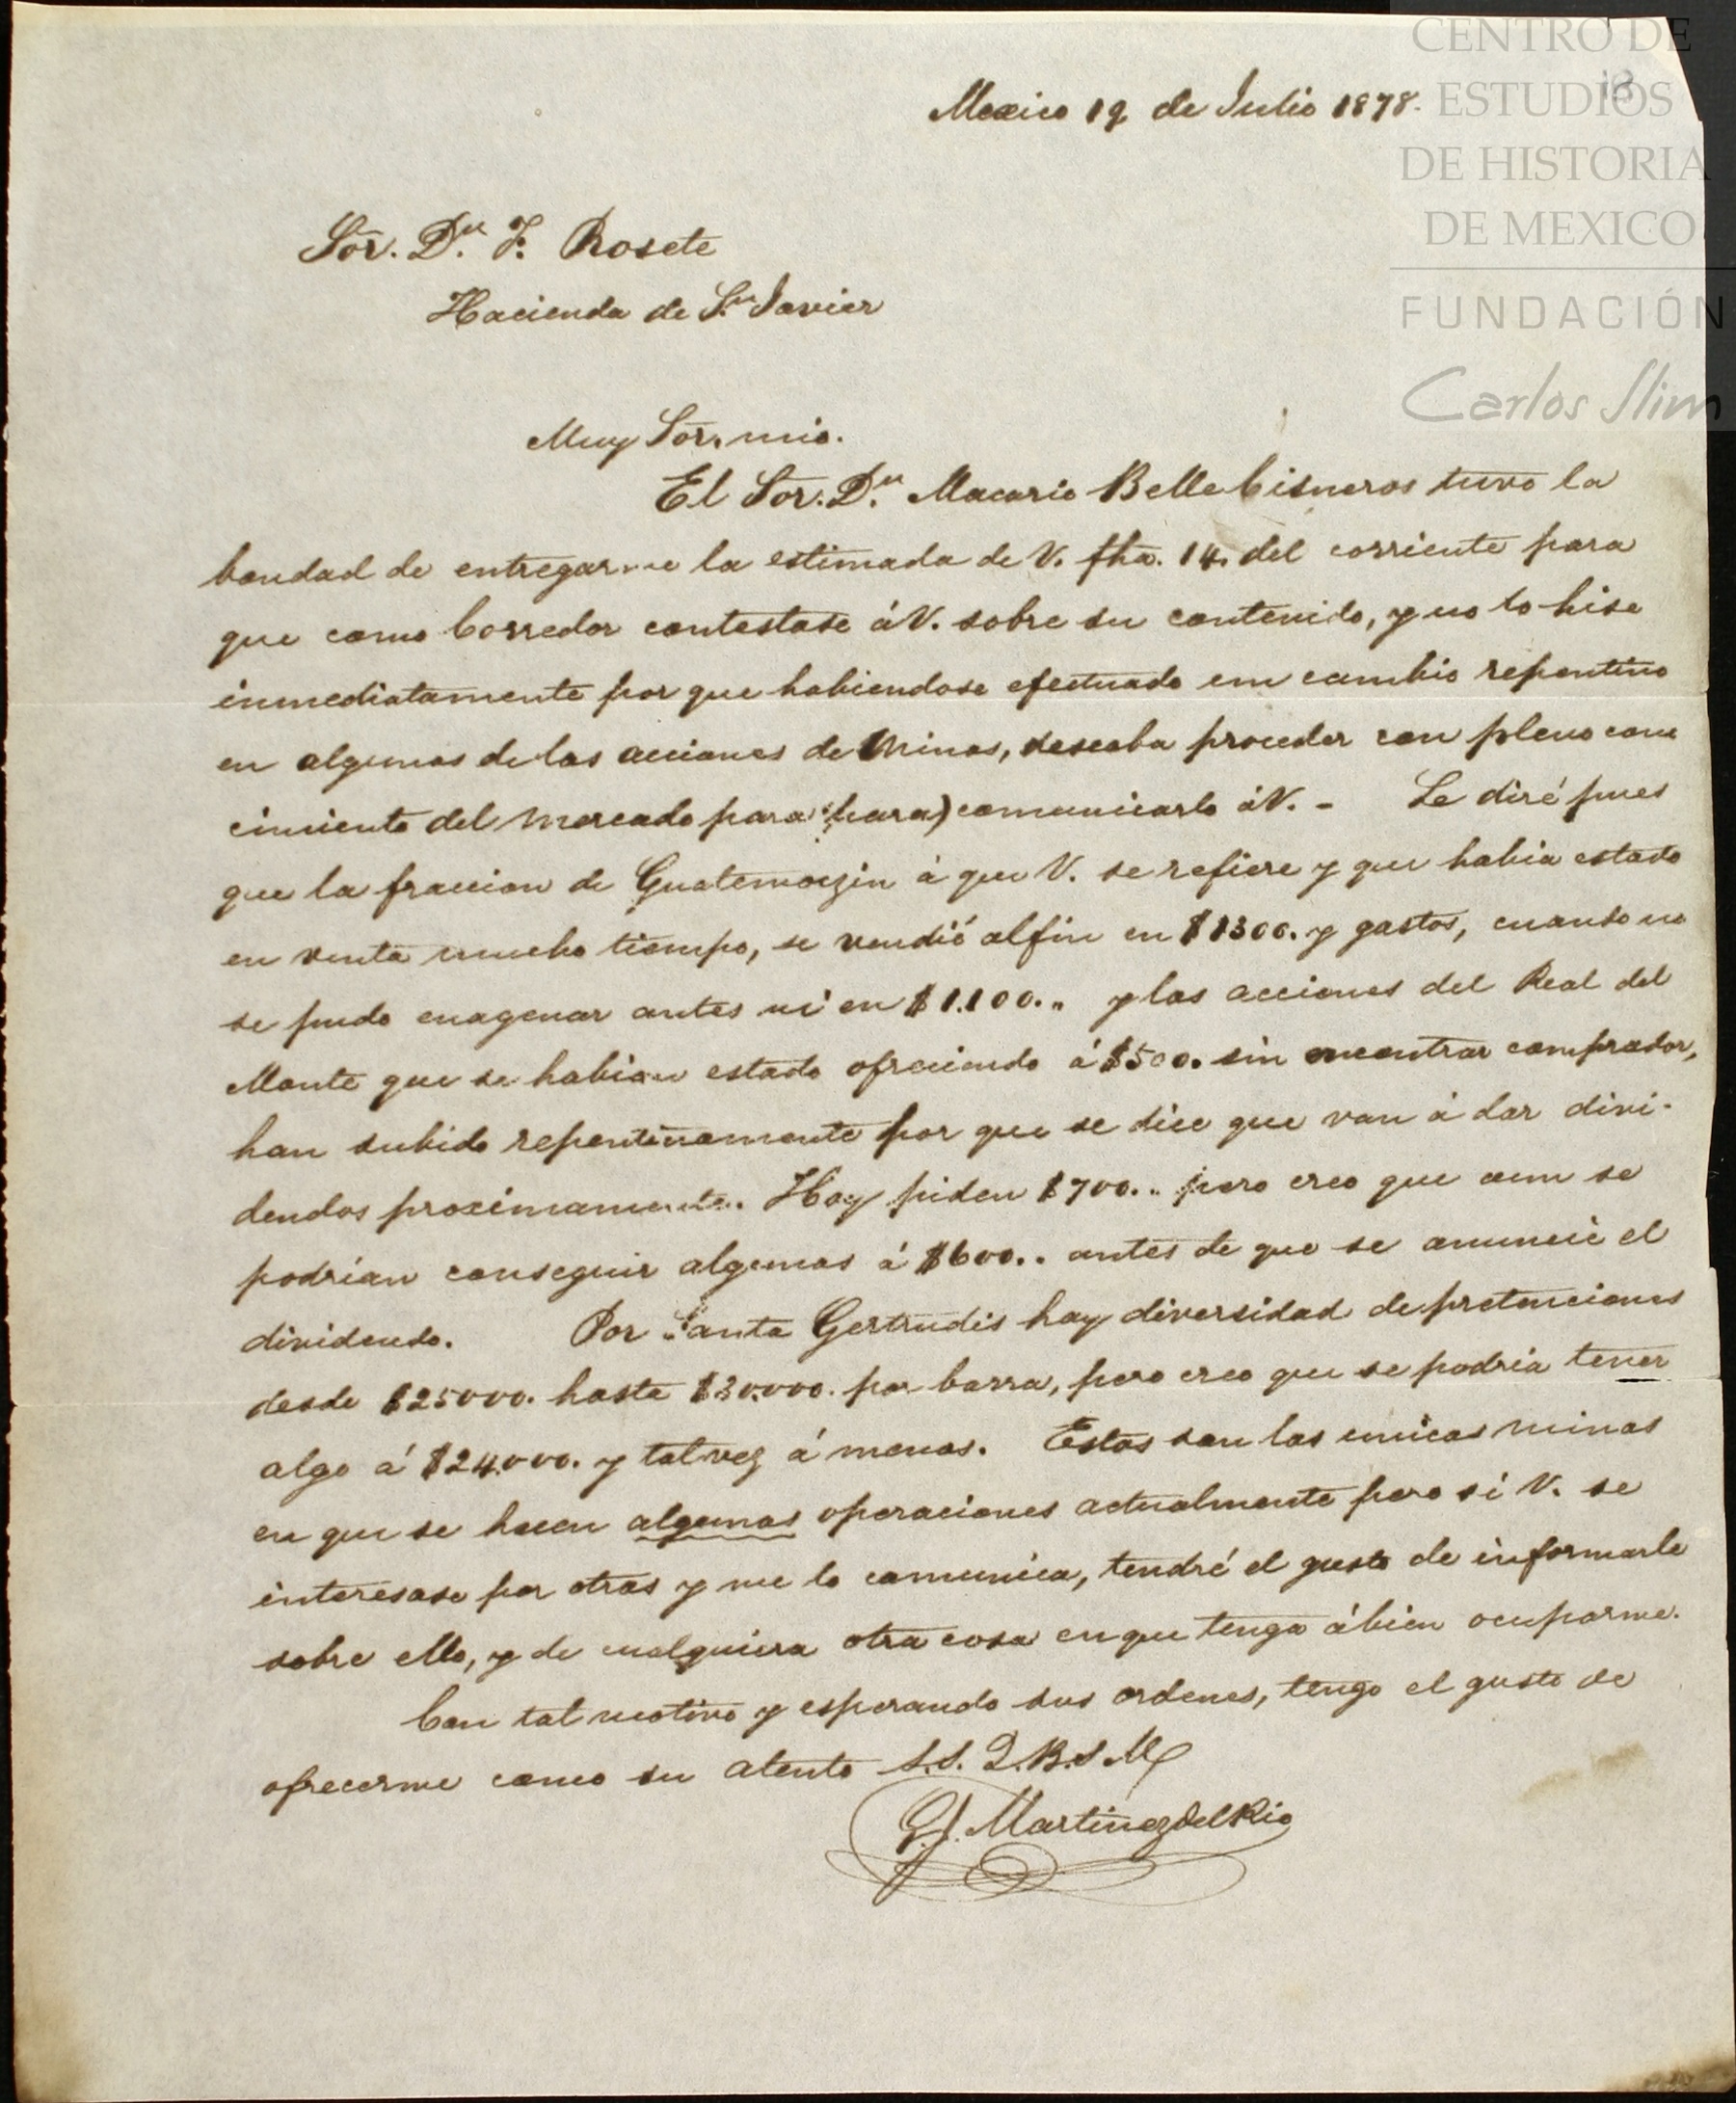 Mexico 19 de Julio 1878.
CENTRO DE
ESTUDIOS
DE HISTORIA
DE MEXICO
FUNDACIÓN
Carlos Slim
Sor. Dn. F. Rosete
Hacienda de Sn. Javier
Muy Sor. mio.
El Sor. Dn. Macario Bella Cisneros tuvo la
bondad de entregarme la estimada de V. fha. 14. del corriente para
que como Corredor contestase á V. sobre su contenido, y no lo hise
inmediatamente por que habiendose efectuado un cambio repentino
en algunas de las acciones de Minas, deseaba proceder con pleno cono
cimiento del mercado para (para) comunicarlo á V. - Le diré pues
que la fraccion de Guatemoczin á que V. se refiere y que habia estado
en venta mucho tiempo, se vendió al fin en $1300. y gastos, cuando no
se pudo enagenar antes ni en $1.100.. y las acciones del Real del
Monte que se habian estado ofreciendo á $500. sin encontrar comprador,
han subido repentinamente por que se dice que van á dar divi-
dendos proximamente. Hoy piden $700.. pero creo que aun se
podrian conseguir algunas á $600.. antes de que se anuncie el
dividendo. Por Santa Gertrudis hay diversidad de pretenciones
desde $25000. hasta $30.000. por barra, pero creo que se podria tener
algo á $24.000. y tal vez á menos. Estas son las unicas minas
en que se hacen algunas operaciones actualmente pero si V. se
interesase por otras y me lo comunica, tendré el gusto de informarle
sobre ello, y de cualquiera otra cosa en que tenga á bien ocuparme.
Con tal motivo y esperando sus ordenes, tengo el gusto de
ofrecerme como su atento S.S. Q.B.S.M
Martinez del Rio